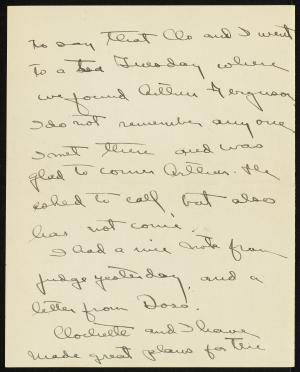 to say that Clo and I went
to a tea Tuesday where
we found Arthur Ferguson
I do not remember any one
I met there and was
glad to corner Arthur. He
asked to call but also
has not come.
I had a nice note from
Judge yesterday, and a
letter from Doso.
Clochette and I have
made great plans for the